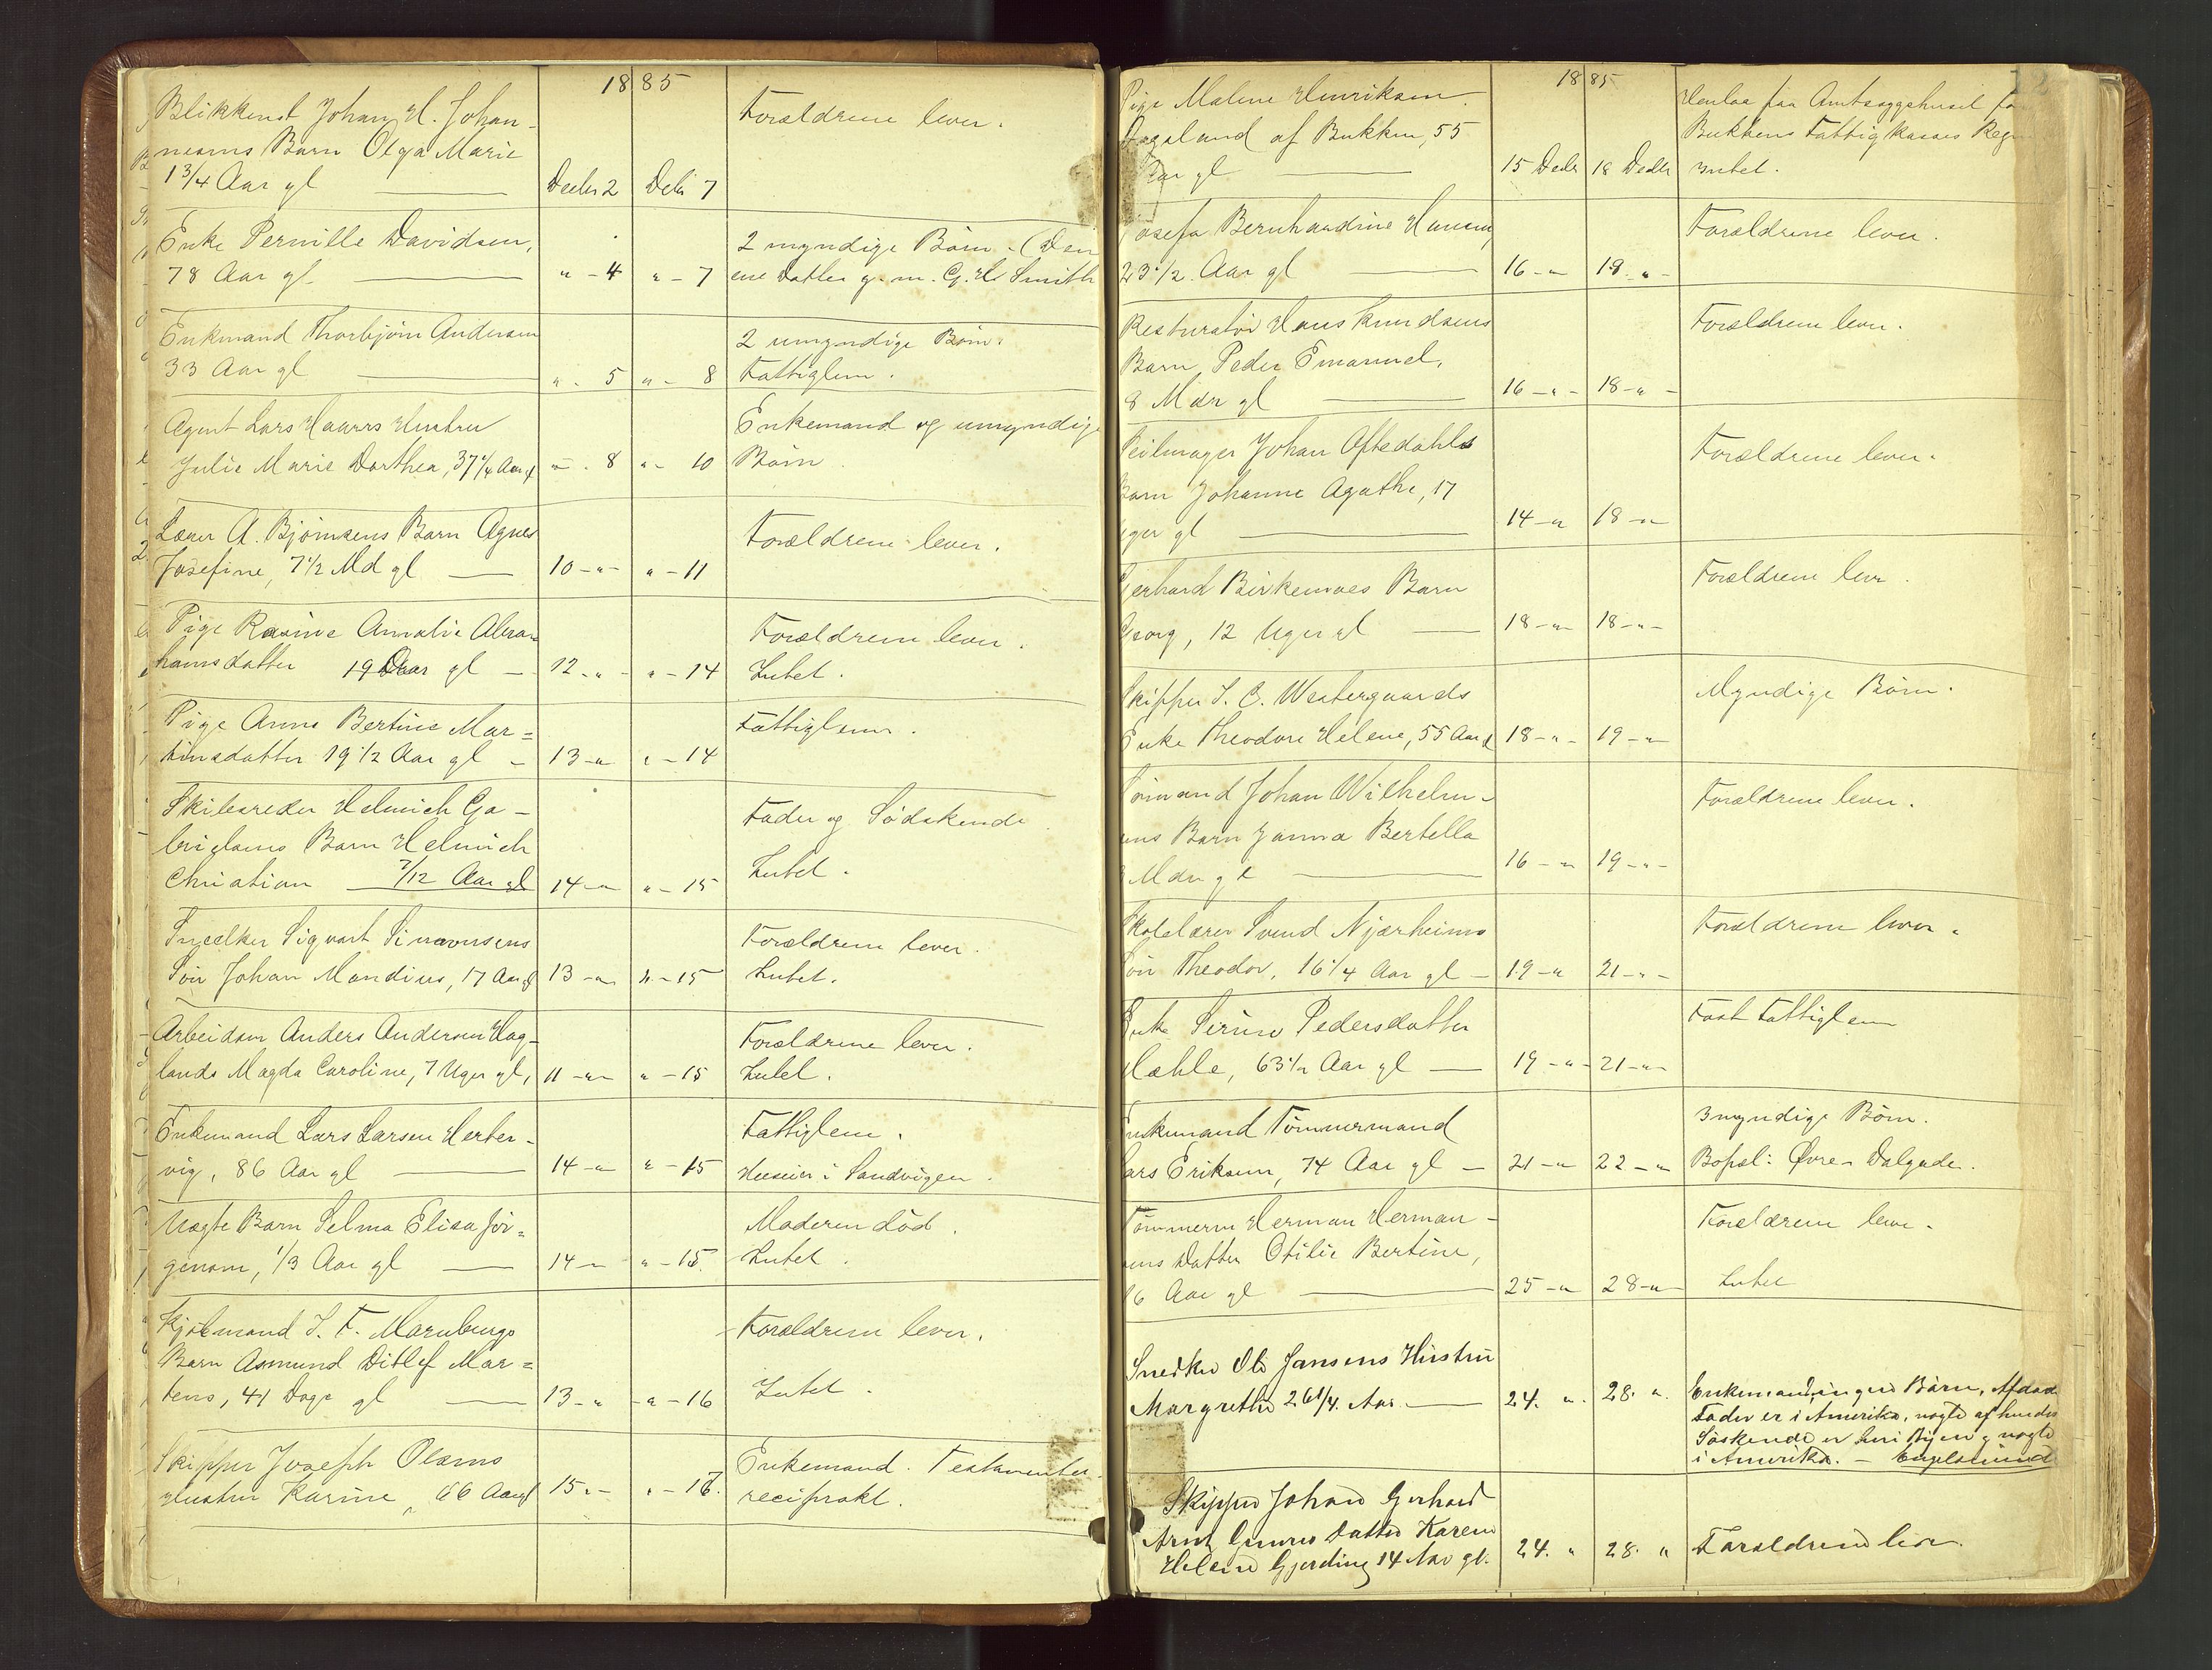 1885
Blikkensl Johan H. Johan-
nesens Barn Olga Marie
1 3/4 Aar gl — Decbr 2 Debr 7
Forældrene lever.
Enke Pernille Davidsen,
78 Aar gl. — " - 4 " - 7
2 myndige Børn - (Den
ene Datter g. m. G. H. Smith
Enkmand Thorbjørn Andersen
33 Aar gl — " - 5 " - 8
2 umyndige Børn.
Fattiglem.
Agent Lars Haarrs Hustru
Julie Marie Dorthea, 37 1/4 Aar gl " - 8 " - 10
Enkemand og umyndige
Børn
Lærer A. Bjørnsens Barn Agnes
Josefine, 7 1/2 Md gl — 10 - " - " - 11
Forældrene lever.
Pige Rasine Amalie Abra-
hamsdatter 19 Aar gl — 12 - " - " - 14
Forældrene lever.
Intet.
Pige Anna Bertine Mar=
tinsdatter 19 1/2 Aar gl — 13 - " " - 14
Fattiglem.
Skibsreder Helmich Ga-
brielsens Barn Helmich
Christian 7/12 Aar gl 14 - " " - 15
Fader og Sødskende
Intet.
Snedker Sigvart Simonsens
Søn Johan Mandius, 17 Aar gl 13 - " " - 15
Forældrene lever.
Intet.
Arbeidsm Anders Andersen Hag-
lands Magda Caroline, 7 Uger gl, 11 - " " - 15
Forældrene lever.
Intet.
Enkemand Lars Larsen Herter-
vig, 86 Aar gl — 14 - " " - 15
Fattiglem.
Huseier i Sandvigen.
Uægte Barn Selma Elisa Jør=
gensen, 1/3 Aar gl — 14 - " " - 15
Moderen død.
Intet.
Kjøbmand J. F. Marnburgs
Barn Asmund Ditlef Mar=
tens, 41 Dage gl — 13 - " " - 16
Forældrene lever.
Intet.
Skipper Joseph Olsens
Hustru Karine, 66 Aar gl 15 " - " - 18.
Enkemand. Testamenter
reciprokt.
1885
Pige Malene Henriksen
af Bukken, 55
Aar gl — 15 Decbr 18 Decbr
paa Amtssygehuset
Bukkens Fattigkasses Regn
Intet.
Josefa Bernhardine Hansen,
23 1/2 Aar gl — 16 - " 19 - " -
Forældrene lever.
Resturatør Hans Knudsens
Barn Peder Emanuel,
8 Mdr gl — 16 - " - 18 - " -
Forældrene lever.
Seilmager Johan Oftedahls
Barn Johanne Agathe, 17
Uger gl — 14 - " 18 - "
Forældrene lever.
Gerhard Birkemoes Barn
Georg, 12 Uger gl — 18 - " 18 - " -
Forældrene lever.
Skipper S. C. Westergaards
Enke Theodore Helene, 55 Aar gl 18 - " - 19 - "
Myndige Børn.
Sømand Johan Wilhelm-
sens Barn Janna Bertella
Mdr gl — 16 - " 19 - " -
Forældrene lever.
Skolelærer Svend Njærheims
Søn Theodor, 16 1/4 Aar gl — 19 - " 21 - " -
Forældrene lever.
Enke Serine Pedersdatter
Mæhle, 63 1/2 Aar gl — 19 - " - 21 - " -
Fast Fattiglem
Enkemand Tømmermand
Lars Eriksen, 74 Aar gl — 21 - " 22 - "
3 myndige Børn.
Bopæl: Øvre Dalgade.
Tømmerm Herman Herman-
sens Datter Otilie Bertine,
16 Aar gl — 25 - " 28 - "
Forældrene lever.
Intet
Snedker Ole Jansens Hustru
Margrethe 26 1/4. Aar. — 24. ". 28. ".
Enkemand, ingen Børn, Afdødes
Fader er i Amerika, nogle af hendes
Søskende er her i Byen & nogle
i Amerika. — Engelsminde
Skipper Johan Gerhard
Datter Karen
Helene Gjerding 14 Aar gl. 24. " 28. "
Forældrene lever.